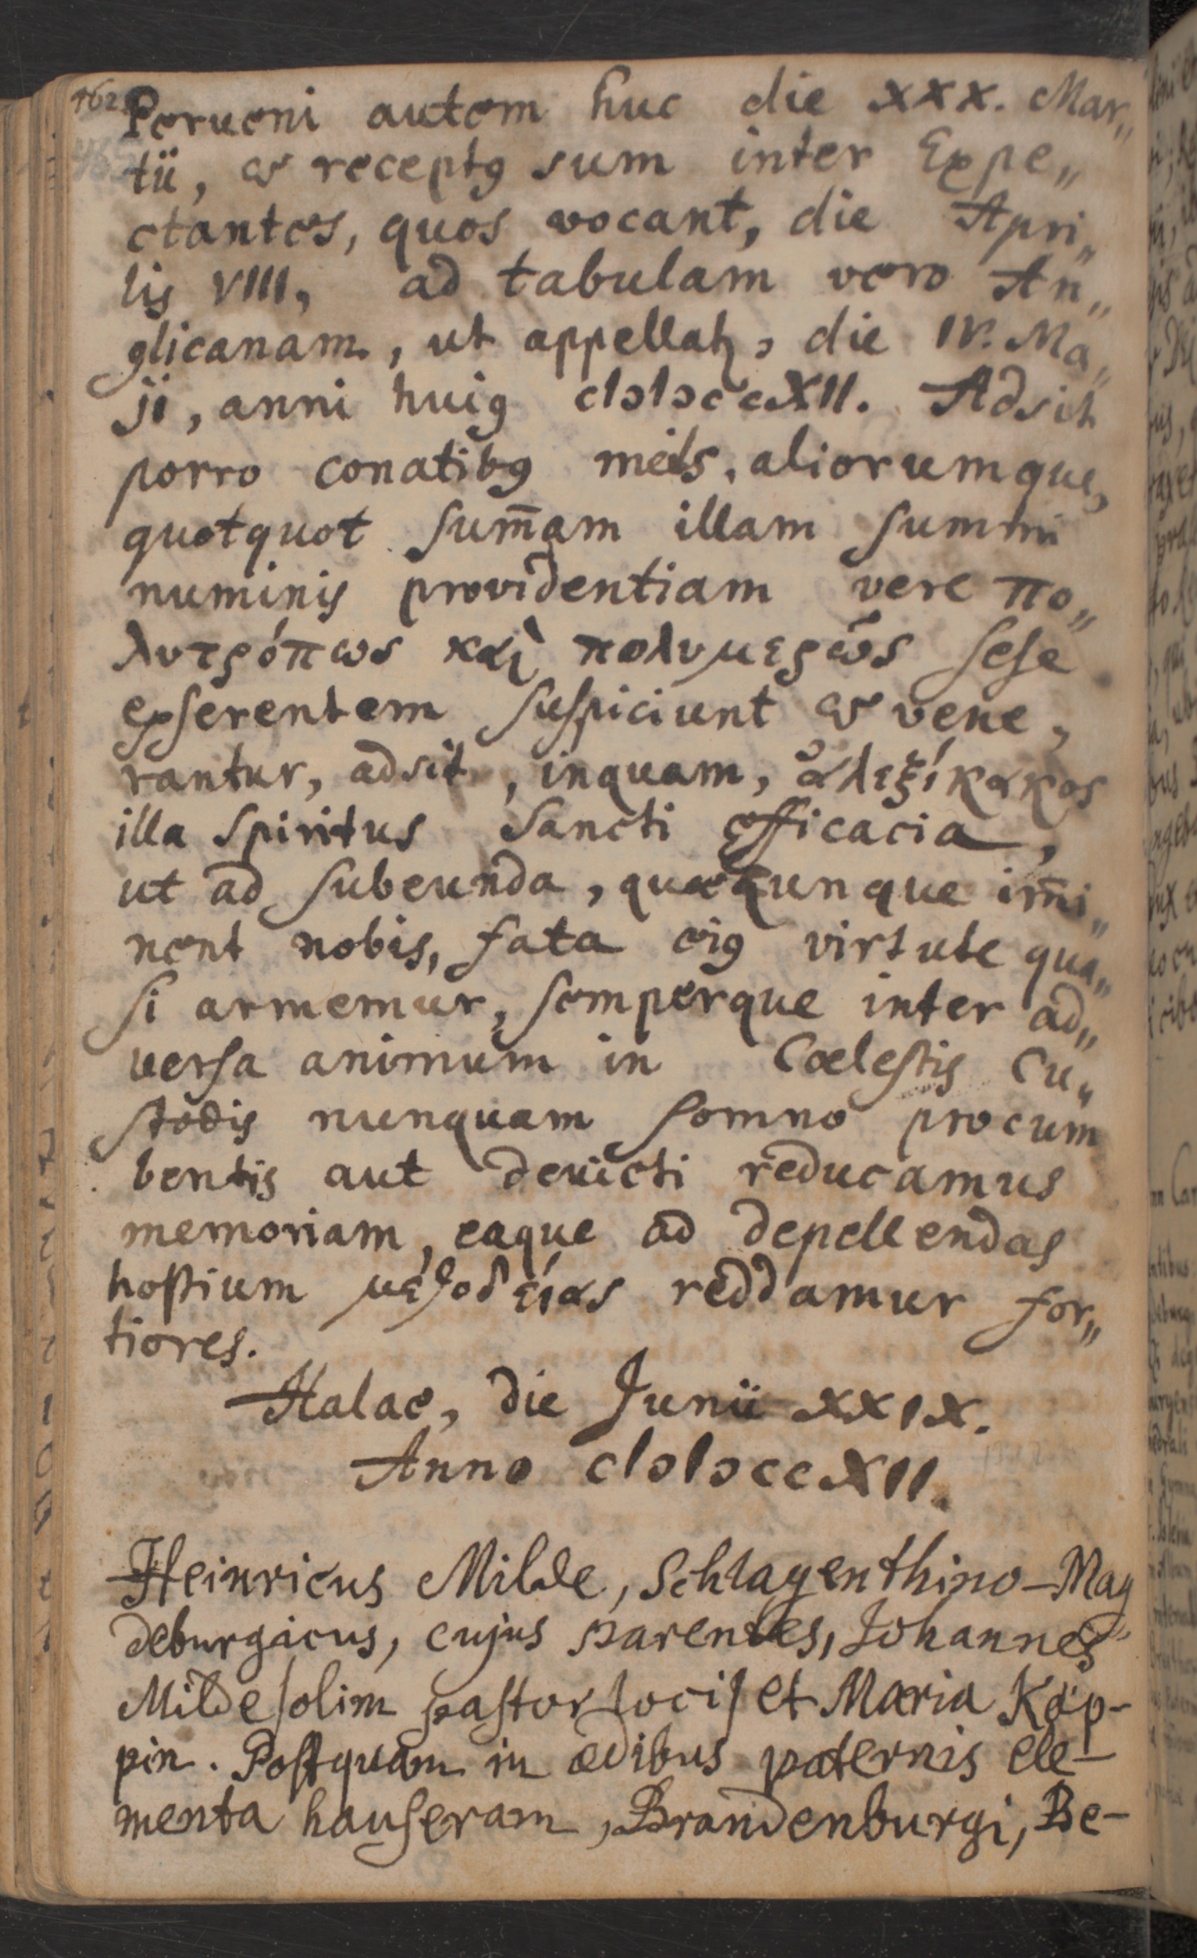 162.
Perveni autem huc die XXX. Mar„
tii, & receptꝰ sum inter Expe„
ctantes, quos vocant, die Apri„
lis VIII, ad tabulam vero An„
glicanam, ut appellatꝛ, die IV. Ma„
ji, anni huiꝰ cIɔIɔccXII. Adsit
porro conatibꝰ meis, aliorumque,
quotquot sum̄am illam summi
numinis providentiam vere πο„
λυτρόπως καὶ πολυμερῶς sese
exserentem suspiciunt & vene„
rantur, adsit, inquam, ἀλεξίκακος
illa Spiritus Sancti efficacia,
ut ad subeunda, quæcunque im̄i„
nent nobis, fata eiꝰ virtute qua„
si armemur, semperque inter ad„
versa animum in Cœlestis Cu„
stodis nunquam somno procum
bentis aut devicti reducamus
memoriam, eaque ad depellendas
hostium μεθοδείας reddamur for„
tiores.
Halae, die Junii XXIX.
Anno cIɔIɔccXII.
Heinricus Milde, Schlagenthino-Mag
deburgicus, cujus parentes, Johannes
Milde/olim pastor loci/et Maria Köp-
pin. Postquam in ædibus paternis ele-
menta hauseram, Brandenburgi, Be-